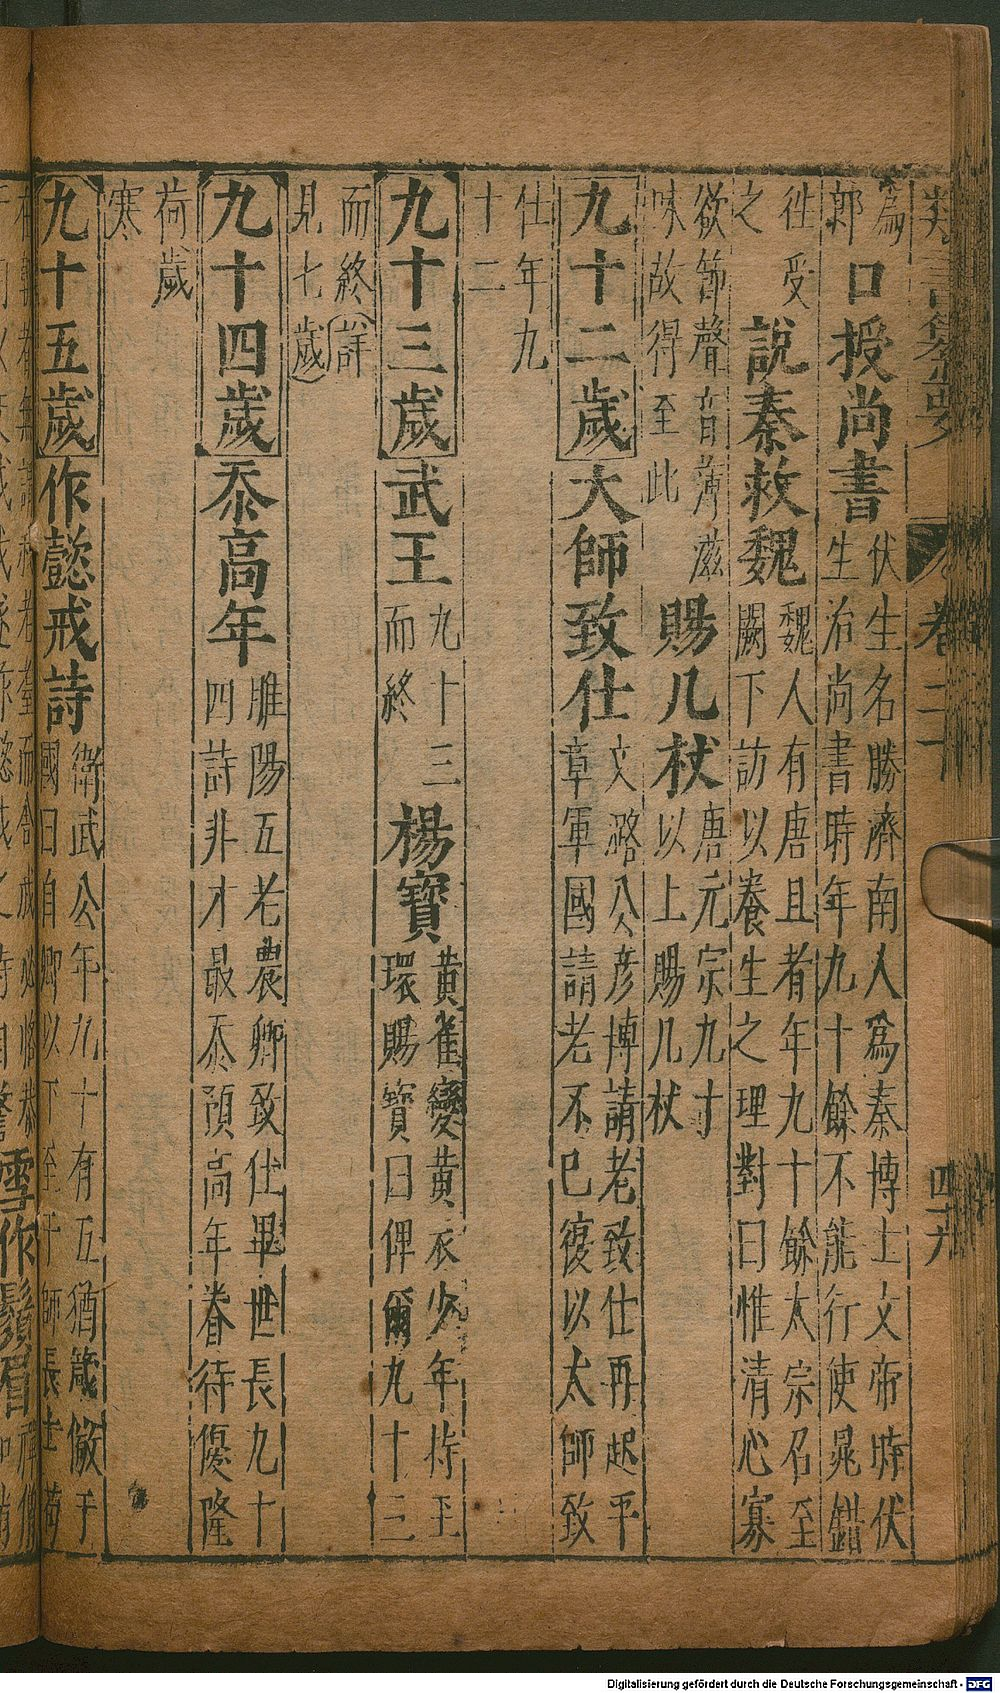 卷二
四十九
為
郭　口授尚書　伏生名勝濟南人為秦博士文帝時伏
生治尚書時年九十餘不能行使晁錯
往受
之　說秦救魏　魏人有唐且者年九十餘太宗召至
闕下訪以養生之理對曰惟清心寡
欲節聲音薄滋
味故得至此　賜几杖　唐元宗九寸
以上賜几杖
九十二歲　大師致仕　文潞公彥博請老致仕再起平
章軍國請老不已復以太師致
仕年九
十二
九十三歲　武王　九十三
而終　楊寶　黃雀變黃衣少年持玉
環賜寶曰俾爾九十三
而終（詳
見七歲）
九十四歲　忝高年　睢陽五老農卿致仕畢世長九十
四詩非才最忝預高年眷待優隆
荷歲
寒
九十五歲　作懿戒詩　衛武公年九十有五猶箴儆于
國曰自卿以下至于師長士苟
雪作鬚眉
Digitalisierung gefördert durch die Deutsche Forschungsgemeinschaft - DFG